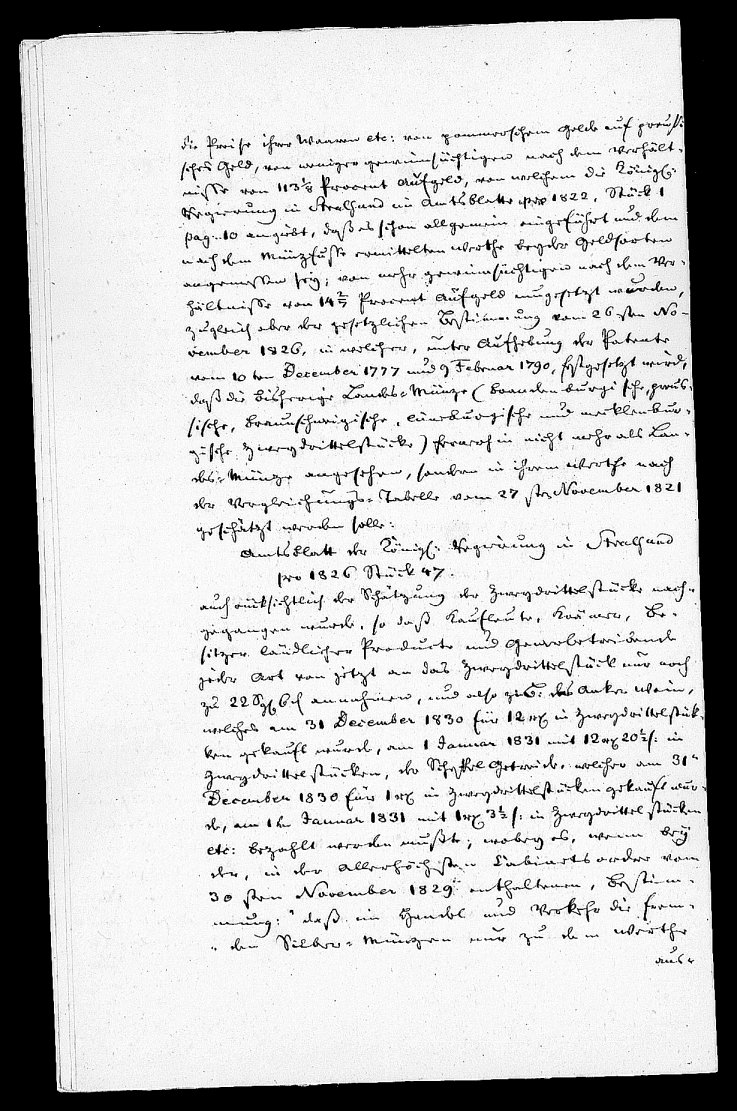 die Preise ihrer Waaren etc: von pommerschem Gelde auf preußi-
sches Geld, von weniger gewinnsüchtigen nach dem Verhält-
nisse von 113⅛ Procent Aufgeld, von welchem die Königl:
Regierung in Stralsund im Amtsblatte pro 1822, Stück 1
pag. 10 angibt, daß es schon allgemein eingeführt und dem
nach dem Münzfuße ermittelten Werthe beyder Geldsorten
angemessen sey; von mehr gewinnsüchtigen nach dem Ver-
hältnisse von 14 2/7 Procent Aufgeld umgesetzt wurden,
zugleich aber der gesetzlichen Bestimmung vom 26sten No-
vember 1826, in welcher, unter Aufhebung der Patente
vom 10ten December 1777 und 9 Februar 1790, festgesetzt wird,
daß die bisherige Landes-Münze (brandenburgische, preus-
sische, braunschweigische, lüneburgische und mecklenbur-
gische Zweydrittelstücke) fernerhin nicht mehr als Lan-
des-Münze angesehen, sondern in ihrem Werthe nach
der Vergleichungs-Tabelle vom 27sten November 1821
geschätzt werden solle:
Amtsblatt der Königl: Regierung in Stralsund
pro 1826 Stück 47.
auch rücksichtlich der Schätzung der Zweydrittelstücke nach-
gegangen wurde, so daß Kaufleute, Krämer, Be-
sitzer ländlicher Producte und Gewerbetreibende
jeder Art von jetzt an das Zweydrittelstück nur noch
zu 22 Sgl 6 annahmen, und also z.B: das Anker Wein,
welches am 31 December 1830 für 12 rx in Zweydrittelstük-
ken gekauft wurde, am 1 Januar 1831 mit 12 rx 20½ s: in
Zweydrittelstücken, der Scheffel Getreide, welcher am 31n
December 1830 für 1 rx in Zweydrittelstücken gekauft wur-
de, am 1ten Januar 1831 mit 1 rx 3½ s: in Zweydrittelstücken
etc: bezahlt werden mußte; wobey es, wenn bey
der, in der Allerhöchsten Cabinetsordre vom
30sten November 1829 enthaltenen, Bestim-
mung: "daß im Handel und Verkehr die frem-
"den Silber-Münzen nur zu dem Werthe
aus-